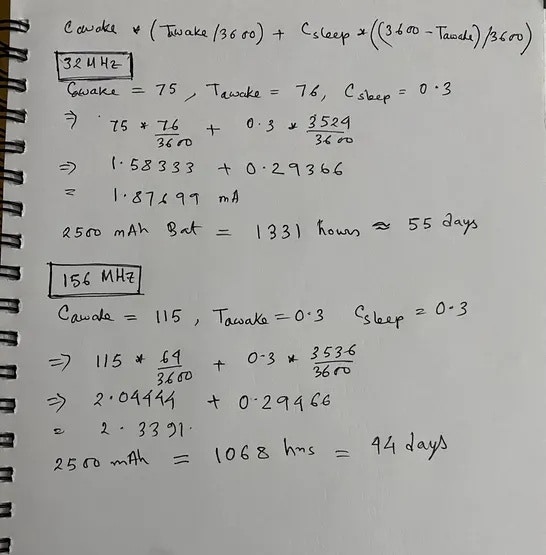 Cawake * (Tawake/3600) + Csleep * ((3600 - Tawake)/3600)
32 MHz
Cawake = 75, Tawake = 76, Csleep = 0.3
⇒ 75 * 76/3600 + 0.3 * 3524/3600
⇒ 1.58333 + 0.29366
= 1.87699 mA
2500 mAh Bat = 1331 hours ≈ 55 days
156 MHZ
Cawake = 115, Tawake = 0.3 Csleep = 0.3
⇒ 115 * 64/3600 + 0.3 * 3536/3600
⇒ 2.04444 + 0.29466
= 2.3391.
2500 mAh = 1068 hrs = 44 days